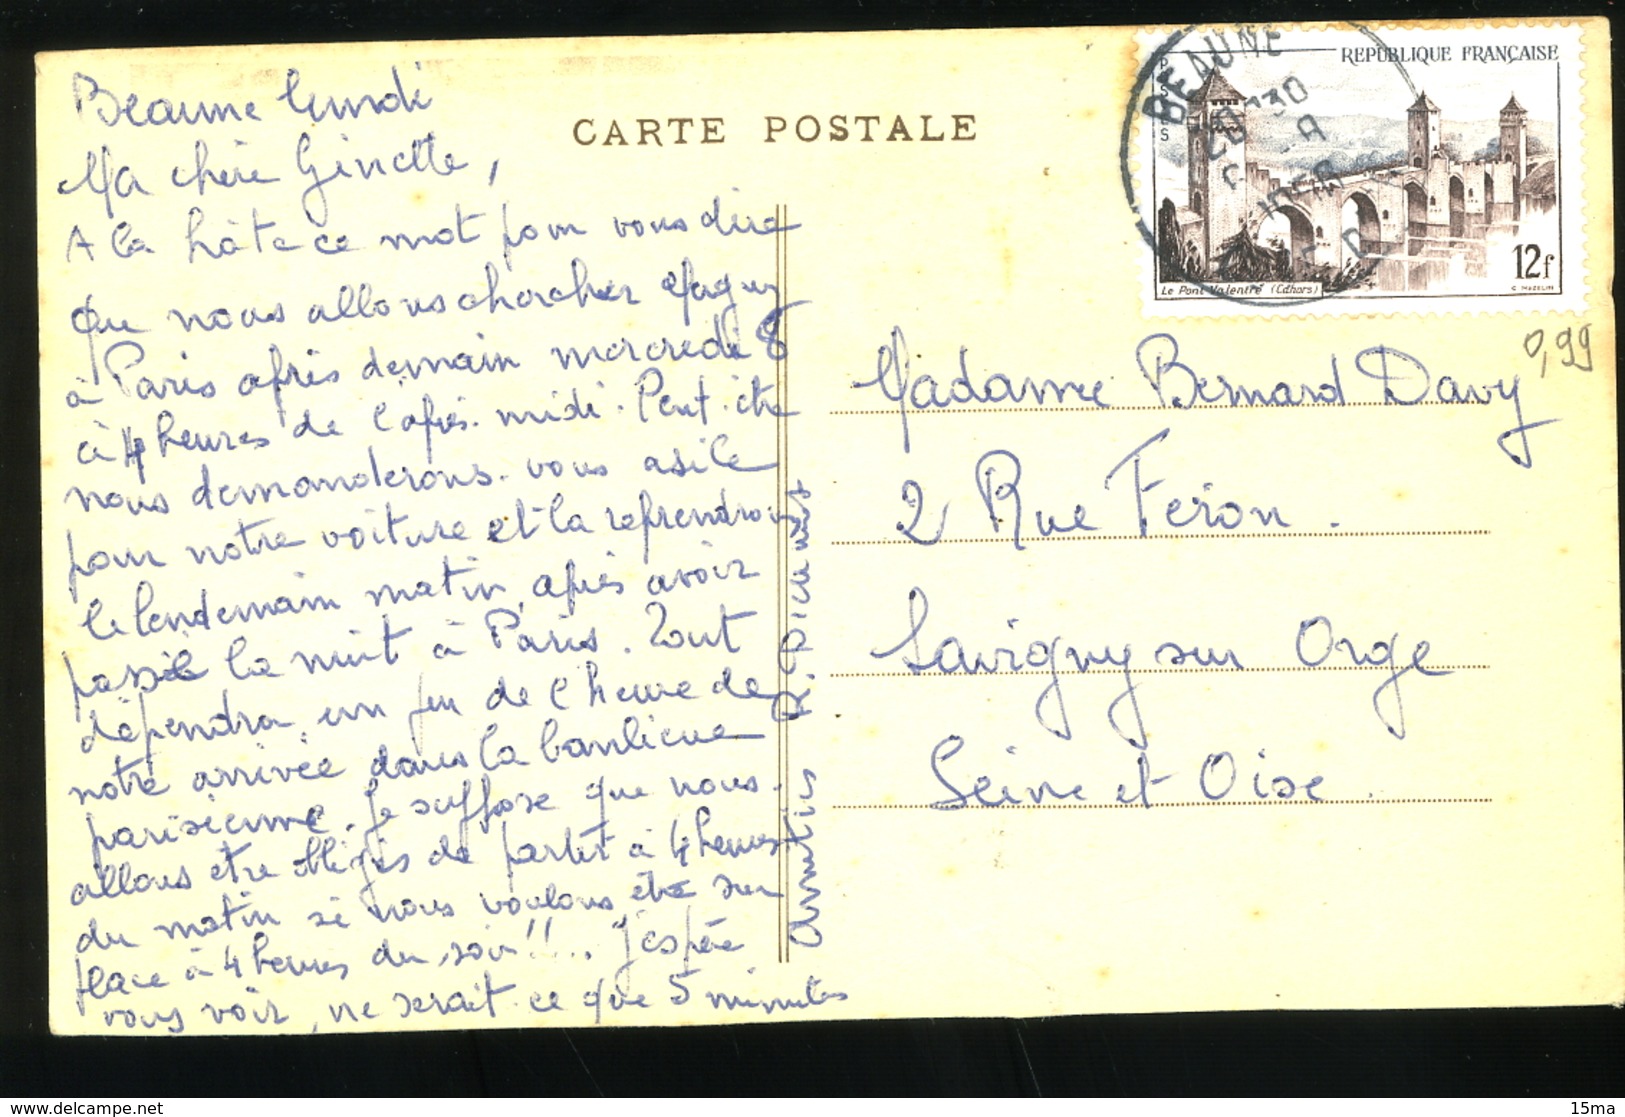 Beaune lundi
Ma chère Ginette,
A la hâte ce mot pour vous dire
que nous allons chercher Maguy
à Paris après demain mercredi 8
à 4 heures de l'après-midi. Peut-être
nous demanderons-vous asile
pour notre voiture et la reprendrons
le lendemain matin, après avoir
passé la nuit à Paris. Tout
dépendra un peu de l'heure de
notre arrivée dans la banlieue
parisienne. Je suppose que nous
allons etre obligés de partir à 4 heures
du matin si nous voulons être sur
place à 4 heures du soir!!... J'espère
vous voir, ne serait-ce que 5 minutes
Amitiés
CARTE POSTALE
BEAUNE
POSTES
REPUBLIQUE FRANÇAISE
12f
Le Pont Valentré (Cahors)
C. MAZELIN
0,99
Madame Bernard Davy
2 Rue Feron.
Savigny sur Orge
Seine et Oise.
delcampe.net
15ma